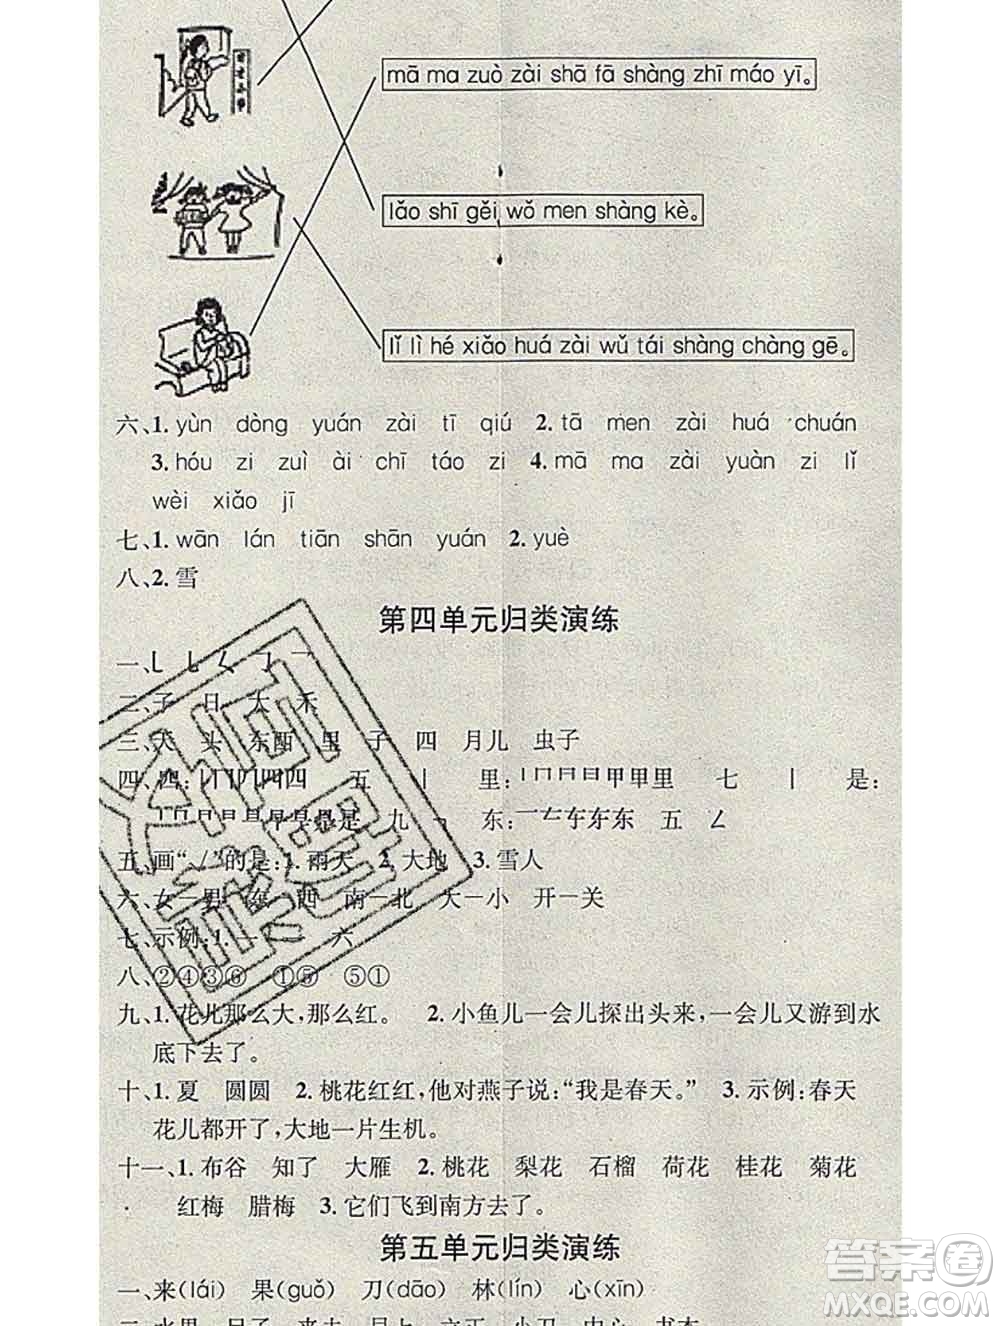 mā ma zuò zài shā fā shàng zhī máo yī。
lǎo shī gěi wǒ men shàng kè。
lǐ lì hé xiǎo huá zài wǔ tái shàng chàng gē。
六、1. yùn dòng yuán zài tī qiú 2. tā men zài huá chuán
3. hóu zi zuì ài chī táo zi 4. mā ma zài yuàn zi lǐ
wèi xiǎo jī
七、1. wān lán tiān shān yuán 2. yuè
八、2. 雪
第四单元归类演练
一、
二、子 日 大 禾
三、天 头 东西 里 子 四 月儿 虫子
四、四: 五 里: 七 是:
是 九 东: 五
五、画“√”的是:1. 雨天 2. 大地 3. 雪人
六、女—男 东—西 南—北 大—小 开—关
七、示例:1. 一 六
八、②④③⑥ ①⑤ ⑤①
九、1. 花儿那么大,那么红。 2. 小鱼儿一会儿探出头来,一会儿又游到水
底下去了。
十、1. 夏 圆圆 2. 桃花红红,他对燕子说:“我是春天。” 3. 示例:春天
花儿都开了,大地一片生机。
十一、1. 布谷 知了 大雁 2. 桃花 梨花 石榴 荷花 桂花 菊花
红梅 腊梅 3. 它们飞到南方去了。
第五单元归类演练
一、来(lái) 果(guǒ) 刀(dāo) 林(lín) 心(xīn)
二、水果 月亮 早上 立正 小刀 中心 书本
答案圈
MXQE.COM